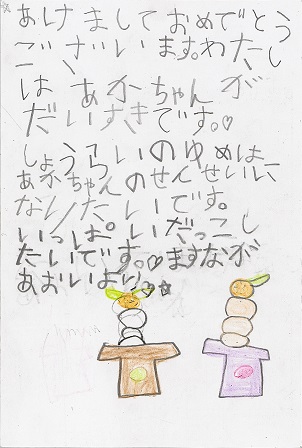 あけましておめでとう
ございます。わたし
は あかちゃん が
だいすきです。♡
しょうらいのゆめは、
あかちゃんのせんせいに
なりたいです。
いっぱいだっこし
たいです。♡ますなが
あおいより